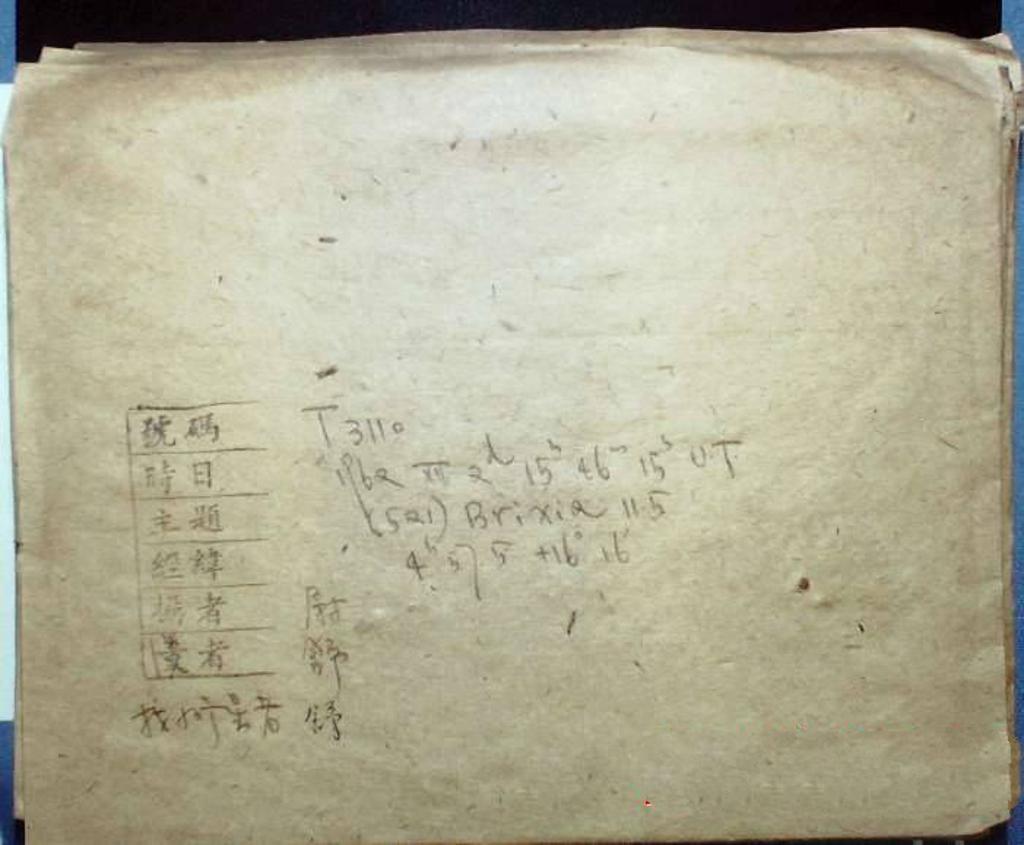 號碼 T 3110
時日 1962 XII 2ᵈ 15ʰ 46ᵐ 15ˢ UT
主題 (521) Brixia 11.5
經緯 4ʰ 57 5 +16° 16'
攝者
量者 舒
找行星者 舒